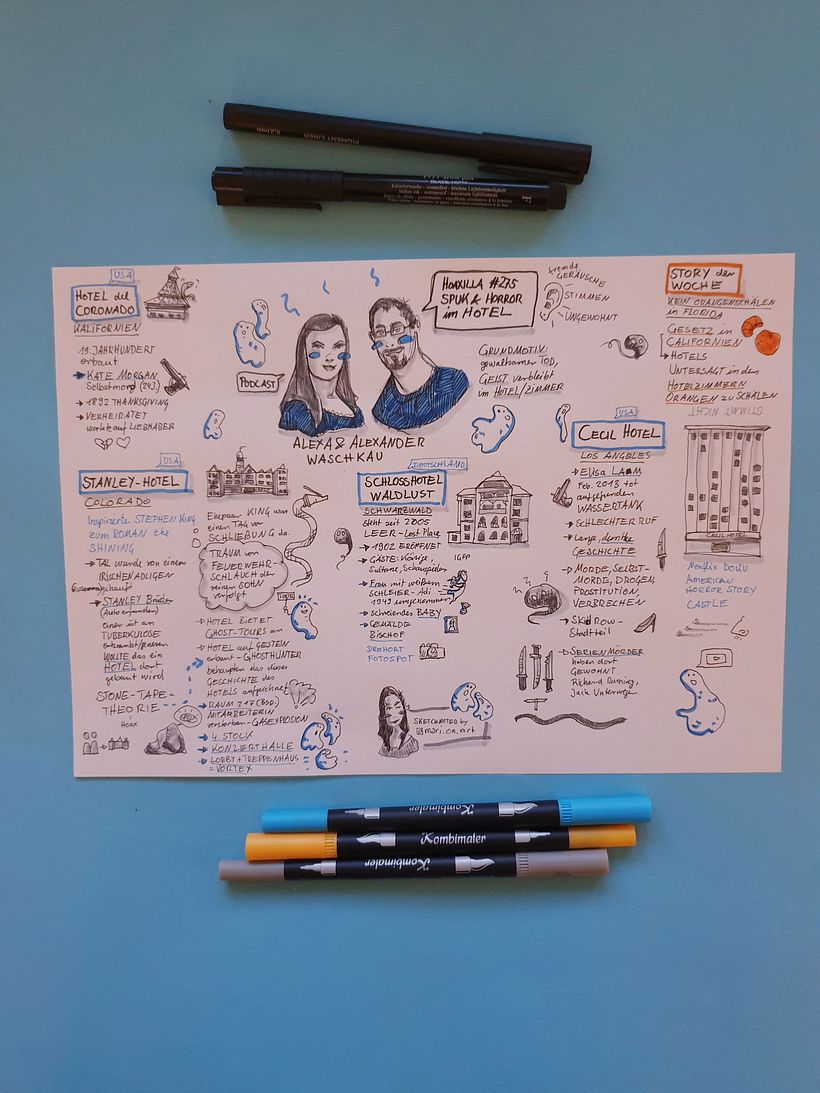 PIGMENT LINER
0.2 mm
F
USA
HOTEL del
CORONADO
KALIFORNIEN
19. JAHRHUNDERT
erbaut
→ KATE MORGAN
Selbstmord (24J.)
→ 1892 THANKSGIVING
→ VERHEIRATET
wartet auf LIEBHABER
PODCAST
HOAXILLA #275
SPUK & HORROR
im HOTEL
ALEXA & ALEXANDER
WASCHKAU
fremde
GERÄUSCHE
STIMMEN
UNGEWOHNT
GRUNDMOTIV:
gewaltsamer TOD,
GEIST verbleibt
im HOTEL/ZIMMER
STORY der
WOCHE
KEIN ORANGENSCHÄLEN
in FLORIDA
GESETZ in
CALIFORNIEN
→ HOTELS
UNTERSAGT in den
HOTELZIMMERN
ORANGEN ZU SCHÄLEN
STIMMT NICHT
USA
STANLEY-HOTEL
COLORADO
Inspirierte STEPHEN KING
zum ROMAN the
SHINING
→ TAL wurde von einem
IRISCHEN ADLIGEN
→ STANLEY Brüder
(Auto erfunden)
einer ist an
TUBERKULOSE
WOLLTE das ein
HOTEL dort
gebaut wird
STONE-TAPE-
THEORIE
HOAX
Ehepaar KING war
einen TAG vor
SCHLIEßUNG da.
TRAUM von
FEUERWEHR-
SCHLAUCH der
seinen SOHN
verfolgt
TOURS
→ HOTEL BIETET
GHOST-TOURS an
→ HOTEL auf GESTEIN
erbaut - GHOSTHUNTER
behaupten das dieses
GESCHICHTE des
HOTELS aufgezeichnet
→ RAUM 217 (Bsp.)
MITARBEITERIN
verstorben - GASEXPLOSION
→ 4. STOCK
→ KONZERTHALLE
→ LOBBY + TREPPENHAUS
= VORTEX
DEUTSCHLAND
SCHLOSSHOTEL
WALDLUST
SCHWARZWALD
steht seit 2005
LEER - Lost Place
→ 1902 ERÖFFNET
→ GÄSTE: Könige,
Sultane, Schauspieler
IGPP
→ Frau mit weißem
SCHLEIER - Adi
1949 umgekommen
→ schreiendes BABY
→ GEMÄLDE
BISCHOF
DREHORT
FOTOSPOT
SKETCHNOTED by
@mari.on.art
USA
CECIL HOTEL
LOS ANGELES
→ Elisa LAM
Feb. 2013 tot
aufgefunden
WASSERTANK
→ SCHLECHTER RUF
→ Lange, dunkle
GESCHICHTE
→ MORDE, SELBST-
MORDE, DROGEN,
PROSTITUTION,
VERBRECHEN
→ Skid Row -
Stadtteil
→ SERIENMÖRDER
haben dort
GEWOHNT
Richard Ramirez,
Jack Unterweger
CECIL HOTEL
Netflix DOKU
AMERICAN
HORROR STORY
CASTLE
Kombimaler
Kombimaler
Kombimaler